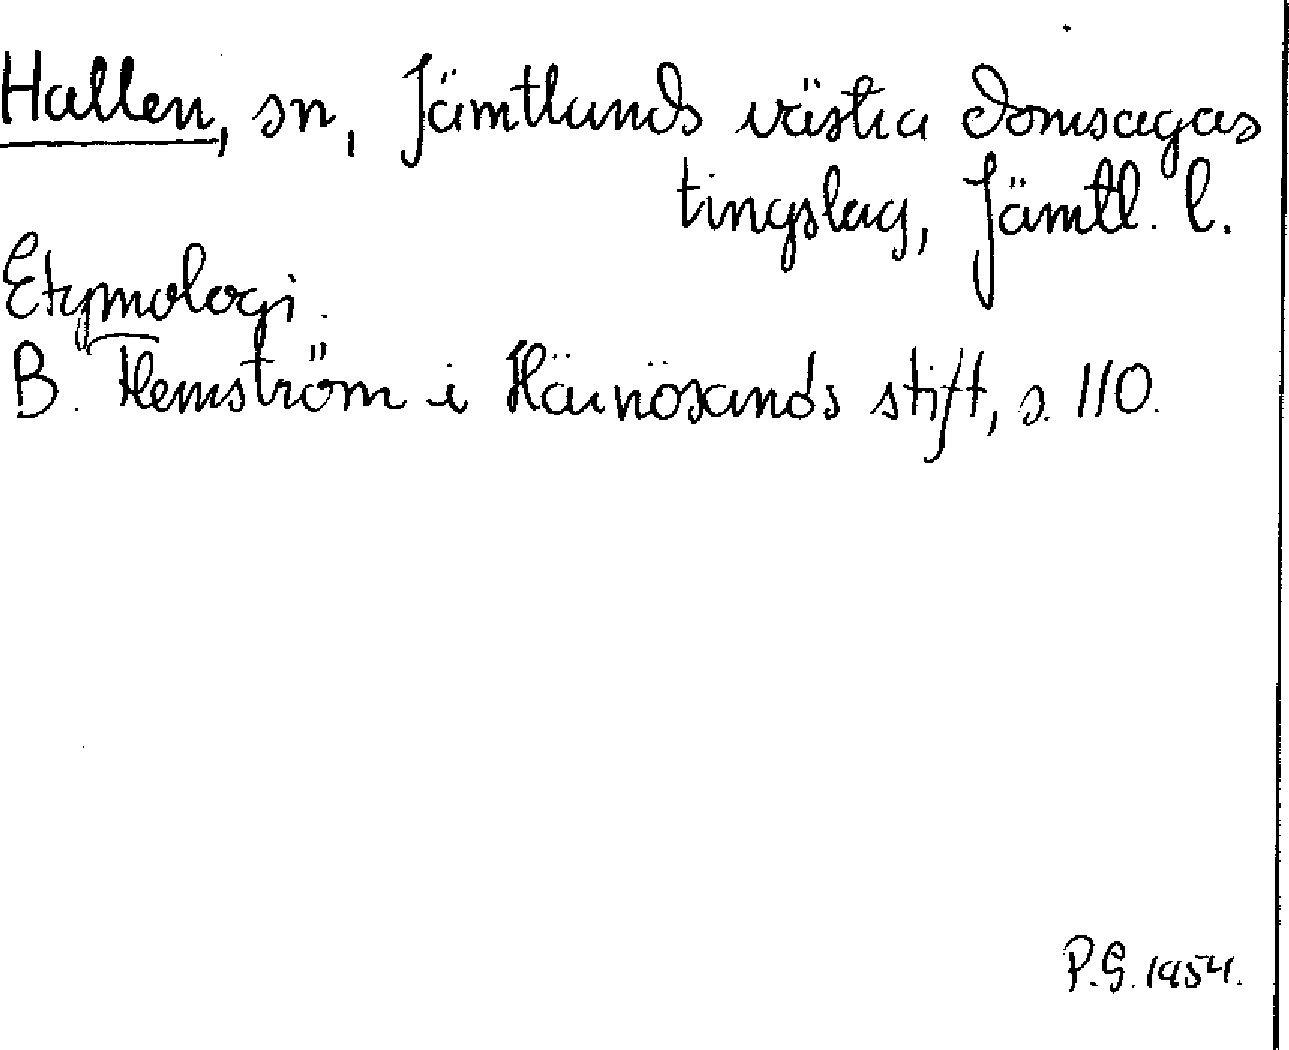 Hallen, sn, Jämtlands västra domsagas
tingslag, Jämtl. l.
Etymologi.
B. Hemström i Härnösands stift, s. 110.
P.G. 1954.